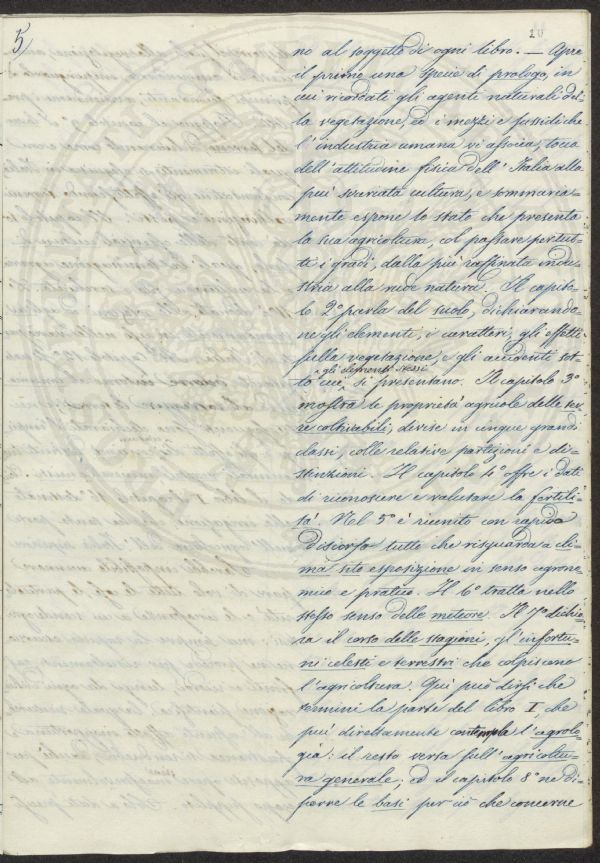 5)
20
no al soggetto di ogni libro. — Apre
il primo una specie di prologo, in
cui ricordati gli agenti naturali del-
la vegetazione, ed i mezzi e sussidi che
l'industria umana vi associa, tocca
dell'attitudine fisica dell'Italia alla
più svariata cultura, e sommaria-
mente espone lo stato che presenta
la sua agricoltura, col passare per tut-
ti i gradi, dalla più raffinata indu-
stria alla rude natura. Il capito-
lo 2º parla del suolo, dichiarando-
ne gli elementi, i caratteri, gli effetti
sulla vegetazione, e gli accidenti sot-
gli elementi stessi
to cui ^ si presentano. Il capitolo 3º
mostra le proprietà agricole delle ter-
re coltivabili, divise in cinque grandi
classi, colle relative partizioni e di-
stinzioni. Il capitolo 4º offre i dati
di riconoscere e valutare la fertili-
tà. Nel 5º è riunito con rapido
discorso tutto che risguarda a cli-
ma sito esposizione in senso agrono-
mico e pratico. Il 6º tratta nello
stesso senso delle meteore. Il 7º dichia-
ra il corso delle stagioni, gl'infortu-
ni celesti e terrestri che colpiscono
l'agricoltura. Qui può dirsi che
termini la parte del libro I, che
più direttamente contempla l'agrolo-
gia: il resto versa sull'agricoltu-
ra generale; ed il capitolo 8º ne di-
scorre le basi per ciò che concerne